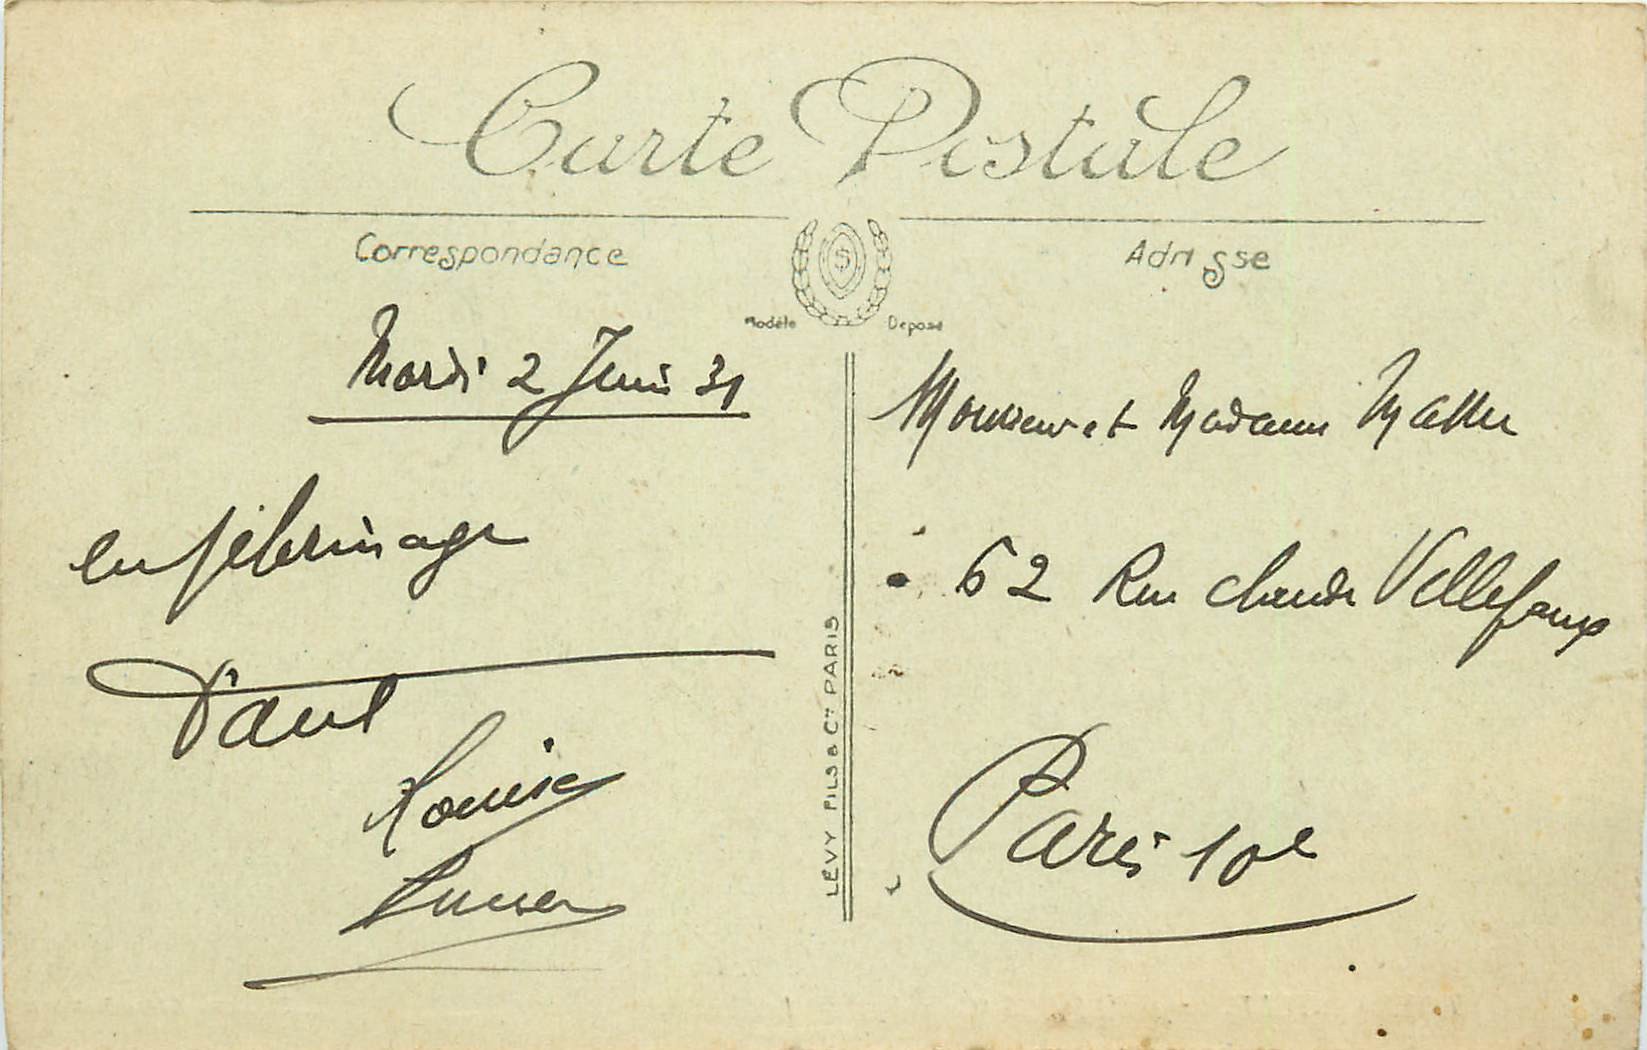 Carte Postale
Correspondance
Adresse
Modèle Déposé
Mardi 2 Juin 31
en pélerinage
Paul
Louise
Monsieur et Madame
62 Rue Claude Vellefaux
Paris 10e
LÉVY FILS & Cie PARIS